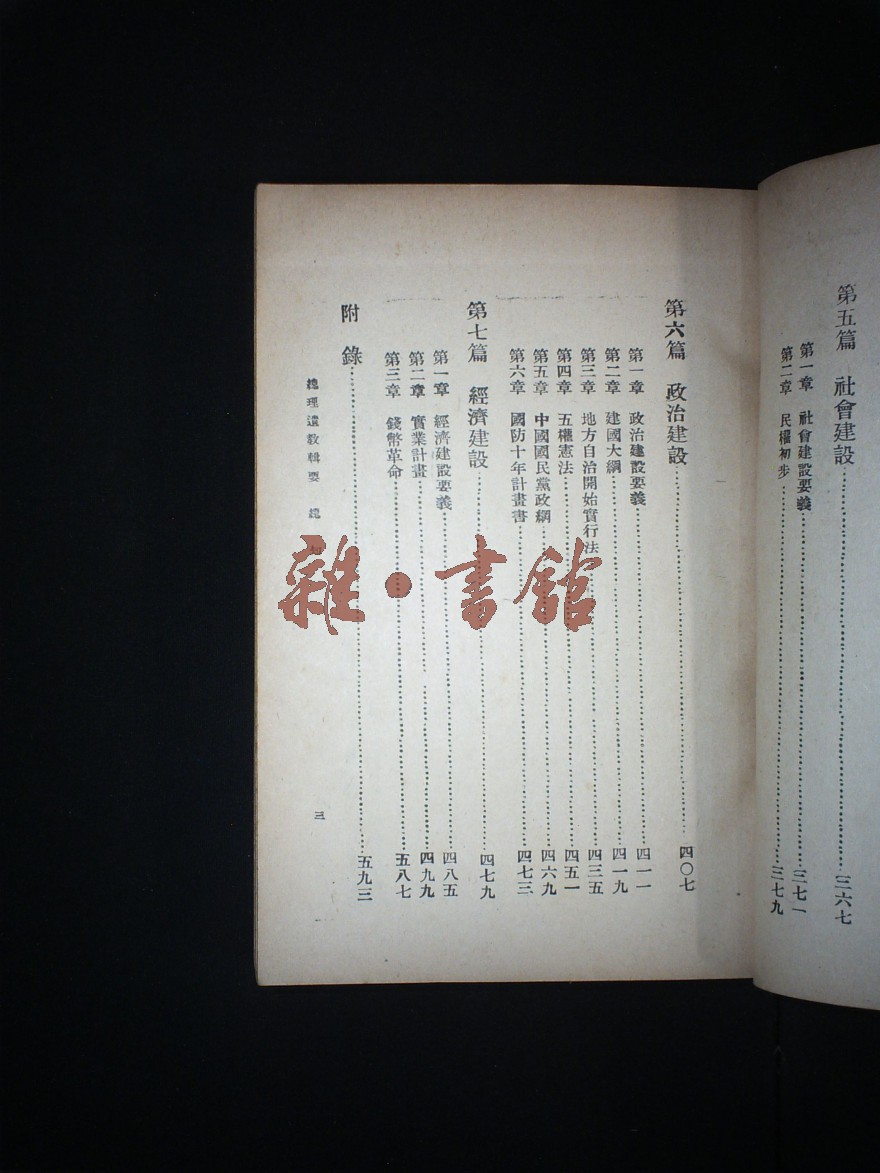 第五篇 社會建設……三六七
第一章 社會建設要義……三七一
第二章 民權初步……三七九
第六篇 政治建設……四〇七
第一章 政治建設要義……四一一
第二章 建國大綱……四一九
第三章 地方自治開始實行法……四三五
第四章 五權憲法……四五一
第五章 中國國民黨政綱……四六九
第六章 國防十年計畫書……四七三
第七篇 經濟建設……四七九
第一章 經濟建設要義……四八五
第二章 實業計畫……四九九
第三章 錢幣革命……五八七
附錄……五九三
總理遺教輯要 總
三
雜·書館